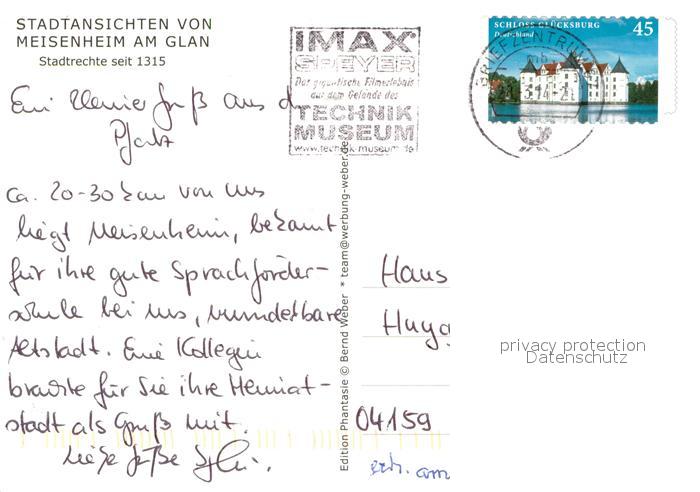 STADTANSICHTEN VON
MEISENHEIM AM GLAN
Stadtrechte seit 1315
IMAX
SPEYER
Das gigantische Filmerlebnis
auf dem Gelände des
TECHNIK
MUSEUM
www.technik-museum.de
SCHLOSS GLÜCKSBURG
Deutschland
45
BRIEFZENTRUM
Ein kleiner Gruß aus d
Pfalz
ca. 20-30 km von uns
liegt Meisenheim, bekannt
für ihre gute Sprachförder-
schule bei uns, wunderbare
Altstadt. Eine Kollegin
brachte für Sie ihre Heimat-
stadt als Gruß mit.
Liebe Grüße
Edition Phantasie © Bernd Weber * team@werbung-weber.de
Hans
Hugg
04159
privacy protection
Datenschutz